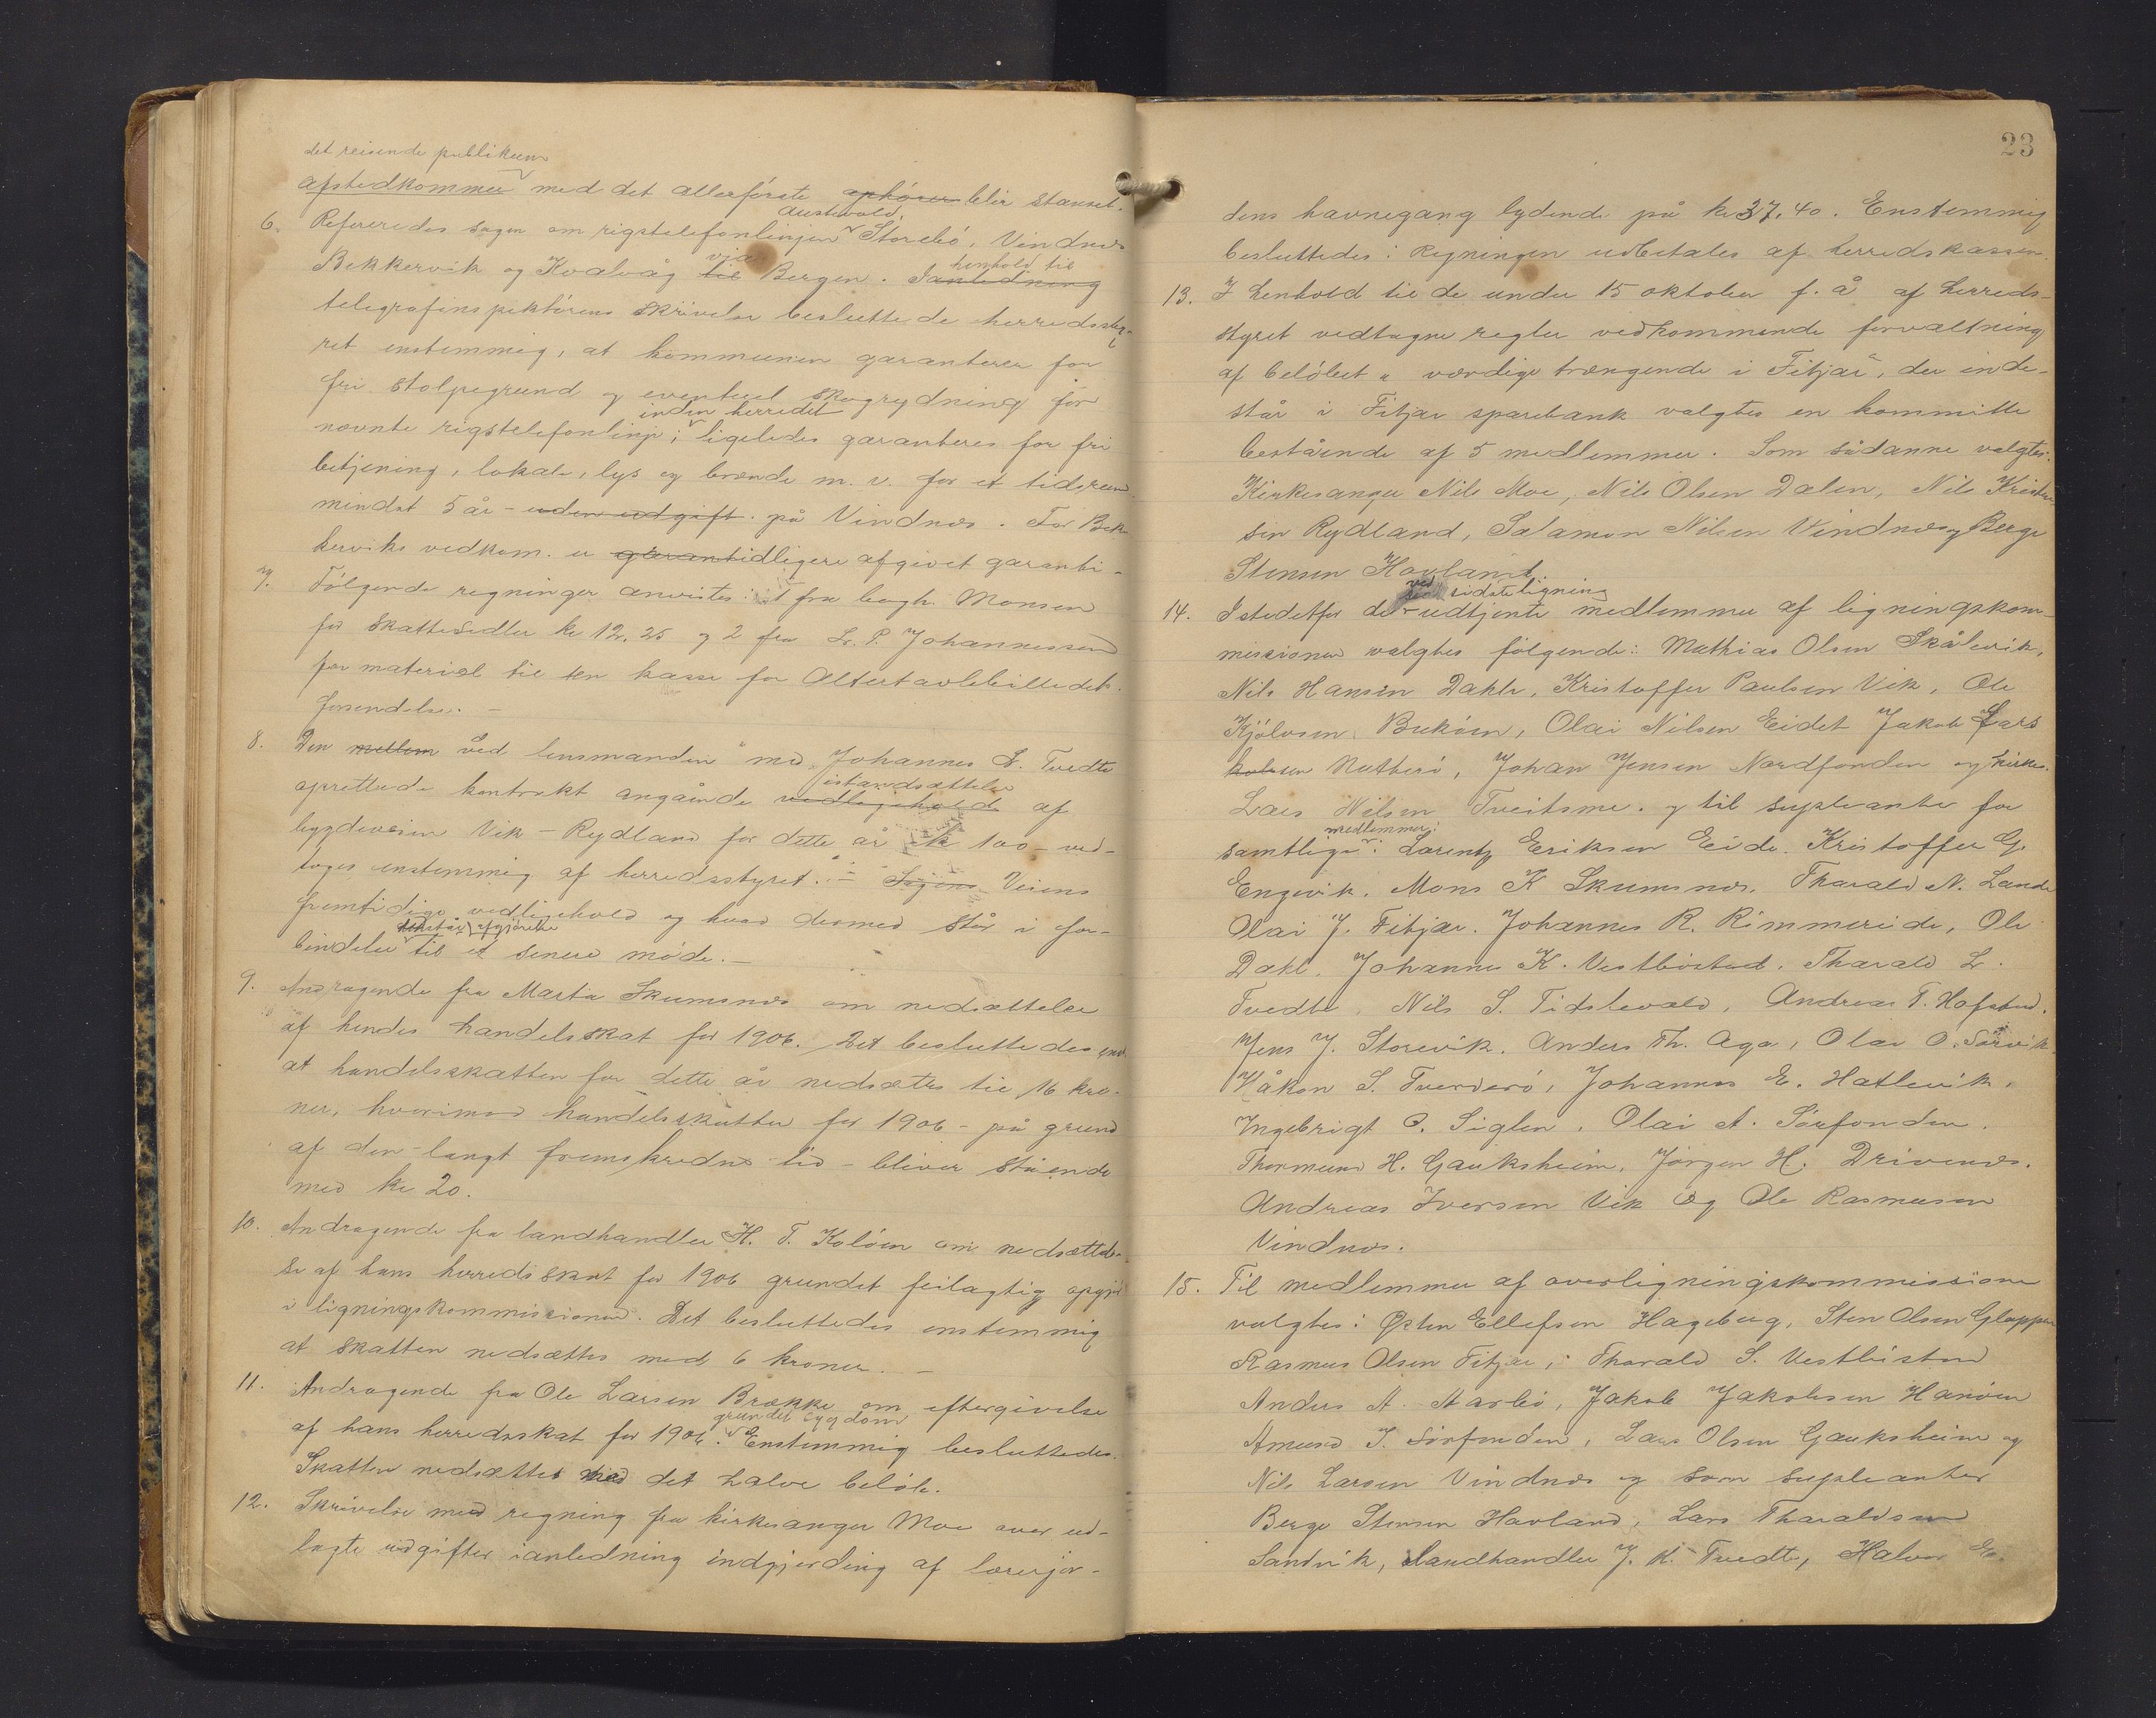 det reisende publikum
afstedkommer med det allerførste ophører blir stanset.
Austevold,
6. Refereredes sagen om rigstelefonlinjen Storebø, Vindnes
via henhold til
Bekkervik og Kvalvåg til Bergen. Ianledning
telegrafinspektørens skrivelse besluttede herredssty-
ret enstemmig, at kommunen garanterer for
fri stolpegrund og eventuel skogrydning for
inden herredet
nævnte rigstelefonlinje; ligeledes garanteres for fri
betjening, lokale, lys og brænde m. v. for et tidsrum
mindst 5 år - uden udgift på Vindnes. For Bek-
kerviks vedkom. er garanti tidligere afgivet garanti -
7. Følgende regninger anvistes: 1 fra bogh. Monsen
for skattesedler kr 12.25 og 2 fra L. P. Johannessen
for material til en kasse for Altertavlebilledets
forsendelse. -
8. Den mellem ved lensmanden med Johannes L. Tvedte
istandsættelse
oprettede kontrakt angående vedligehold af
bygdeveien Vik - Rydland for dette år kr 100 - ved-
toges enstemmig af herredsstyret. - Veiens
fremtidige vedligehold og hvad dermed står i for-
afgjørelse
bindelse til et senere møde. -
9. Andragende fra Marta Skumsnes om nedsættelse
af hendes handelsskat for 1906. Det besluttedes
at handelsskatten for dette år nedsættes til 16 kro-
ner, hvorimod handelsskatten for 1906 - på grund
af den langt fremskredne tid - bliver stående
med kr 20.
10. Andragende fra landhandler H. T. Koløen om nedsættel-
se af hans herredsskat for 1906 grundet feilagtig opgjør
i ligningskommissionen. Det besluttedes enstemmig
at skatten nedsættes med 6 kroner. -
11. Andragende fra Ole Larsen Brække om eftergivelse
grundet sygdom
af hans herredsskat for 1906. Enstemmig besluttedes.
Skatten nedsættes med det halve beløb.
12. Skrivelse med regning fra kirkesanger Moe over ud-
lagte udgifter ianledning indgjerding af lærerjor-
23
dens havnegang lydende på kr 37.40. Enstemmig
besluttedes: Regningen udbetales af herredskassen.
13. I henhold til de under 15 oktober f. å af herreds-
styret vedtagne regler vedkommende forvaltning
af beløbet "værdige trængende i Fitjar", der inde-
står i Fitjar sparebank valgtes en kommitte
bestående af 5 medlemmer. Som sådanne valgtes:
Kirkesanger Nils Moe, Nils Olsen Dalen, Nils Kristen-
sen Rydland, Salamon Nilsen Vindnes og Berge
Stensen Havland.
ved sidste ligning
14. Istedetfor de udtjente medlemmer af ligningskom-
missionen valgtes følgende: Mathias Olsen Skålevik,
Nils Hansen Dahle, Kristoffer Paulsen Vik, Ole
Kjølvsen Bukøen, Olai Nilsen Eidet Jakob Lars
sen Nutherø, Johan Jensen Nordfonden og kirkes.
Lars Nilsen Tveitsme. og til supleanter for
medlemmer:
samtlige: Larentz Eriksen Eide. Kristoffer G.
Engevik. Mons K Skumsnes. Tharald N. Lande
Olai J. Fitjar. Johannes R. Rimmereide, Ole
Dahl. Johannes K. Vestbøstad. Tharald L.
Tvedte, Nils S. Tislevold, Andreas T. Hofstad.
Jens J. Storevik. Anders Th. Aga, Olai O. Sørvik
Håkon S. Tverderø, Johannes E. Hatlevik.
Ingebrigt O. Siglen. Olai A. Sørfonden.
Thormund H. Gauksheim, Jørgen H. Drivenes.
Andreas Iversen Vik og Ole Rasmusen
Vindnes.
15. Til medlemmer af overligningskommissionen
valgtes: Østen Ellefsen Hageberg, Sten Olsen Gloppen
Rasmus Olsen Fitjar, Tharald S. Vestbøstad
Anders A. Aarbø, Jakob Jakobsen Hanøen
Amund J. Sørfonden, Lars Olsen Gauksheim og
Nils Larsen Vindnes og som supleanter
Berge Stensen Havland, Lars Tharaldsen
Sandvik, Landhandler J. K. Tvedte, Halvor